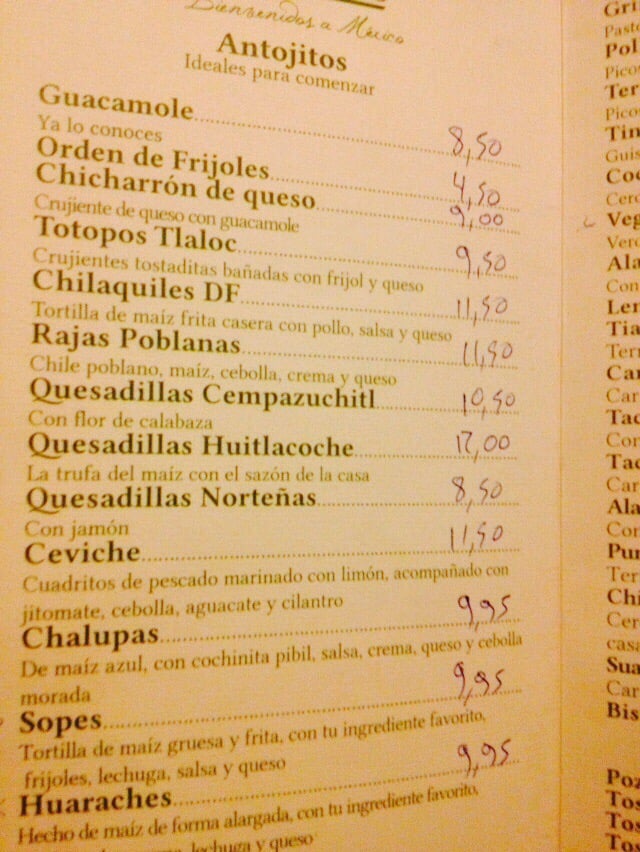 Bienvenidos a México
Antojitos
Ideales para comenzar
Guacamole 8,50
Ya lo conoces
Orden de Frijoles 4,50
Chicharrón de queso 9,00
Crujiente de queso con guacamole
Totopos Tlaloc 9,50
Crujientes tostaditas bañadas con frijol y queso
Chilaquiles DF 11,50
Tortilla de maíz frita casera con pollo, salsa y queso
Rajas Poblanas 11,50
Chile poblano, maíz, cebolla, crema y queso
Quesadillas Cempazuchitl 10,50
Con flor de calabaza
Quesadillas Huitlacoche 12,00
La trufa del maíz con el sazón de la casa
Quesadillas Norteñas 8,50
Con jamón
Ceviche 11,50
Cuadritos de pescado marinado con limón, acompañado con
jitomate, cebolla, aguacate y cilantro
Chalupas 9,95
De maíz azul, con cochinita pibil, salsa, crema, queso y cebolla
morada
Sopes 9,95
Tortilla de maíz gruesa y frita, con tu ingrediente favorito,
frijoles, lechuga, salsa y queso
Huaraches 9,95
Hecho de maíz de forma alargada, con tu ingrediente favorito,
lechuga y queso